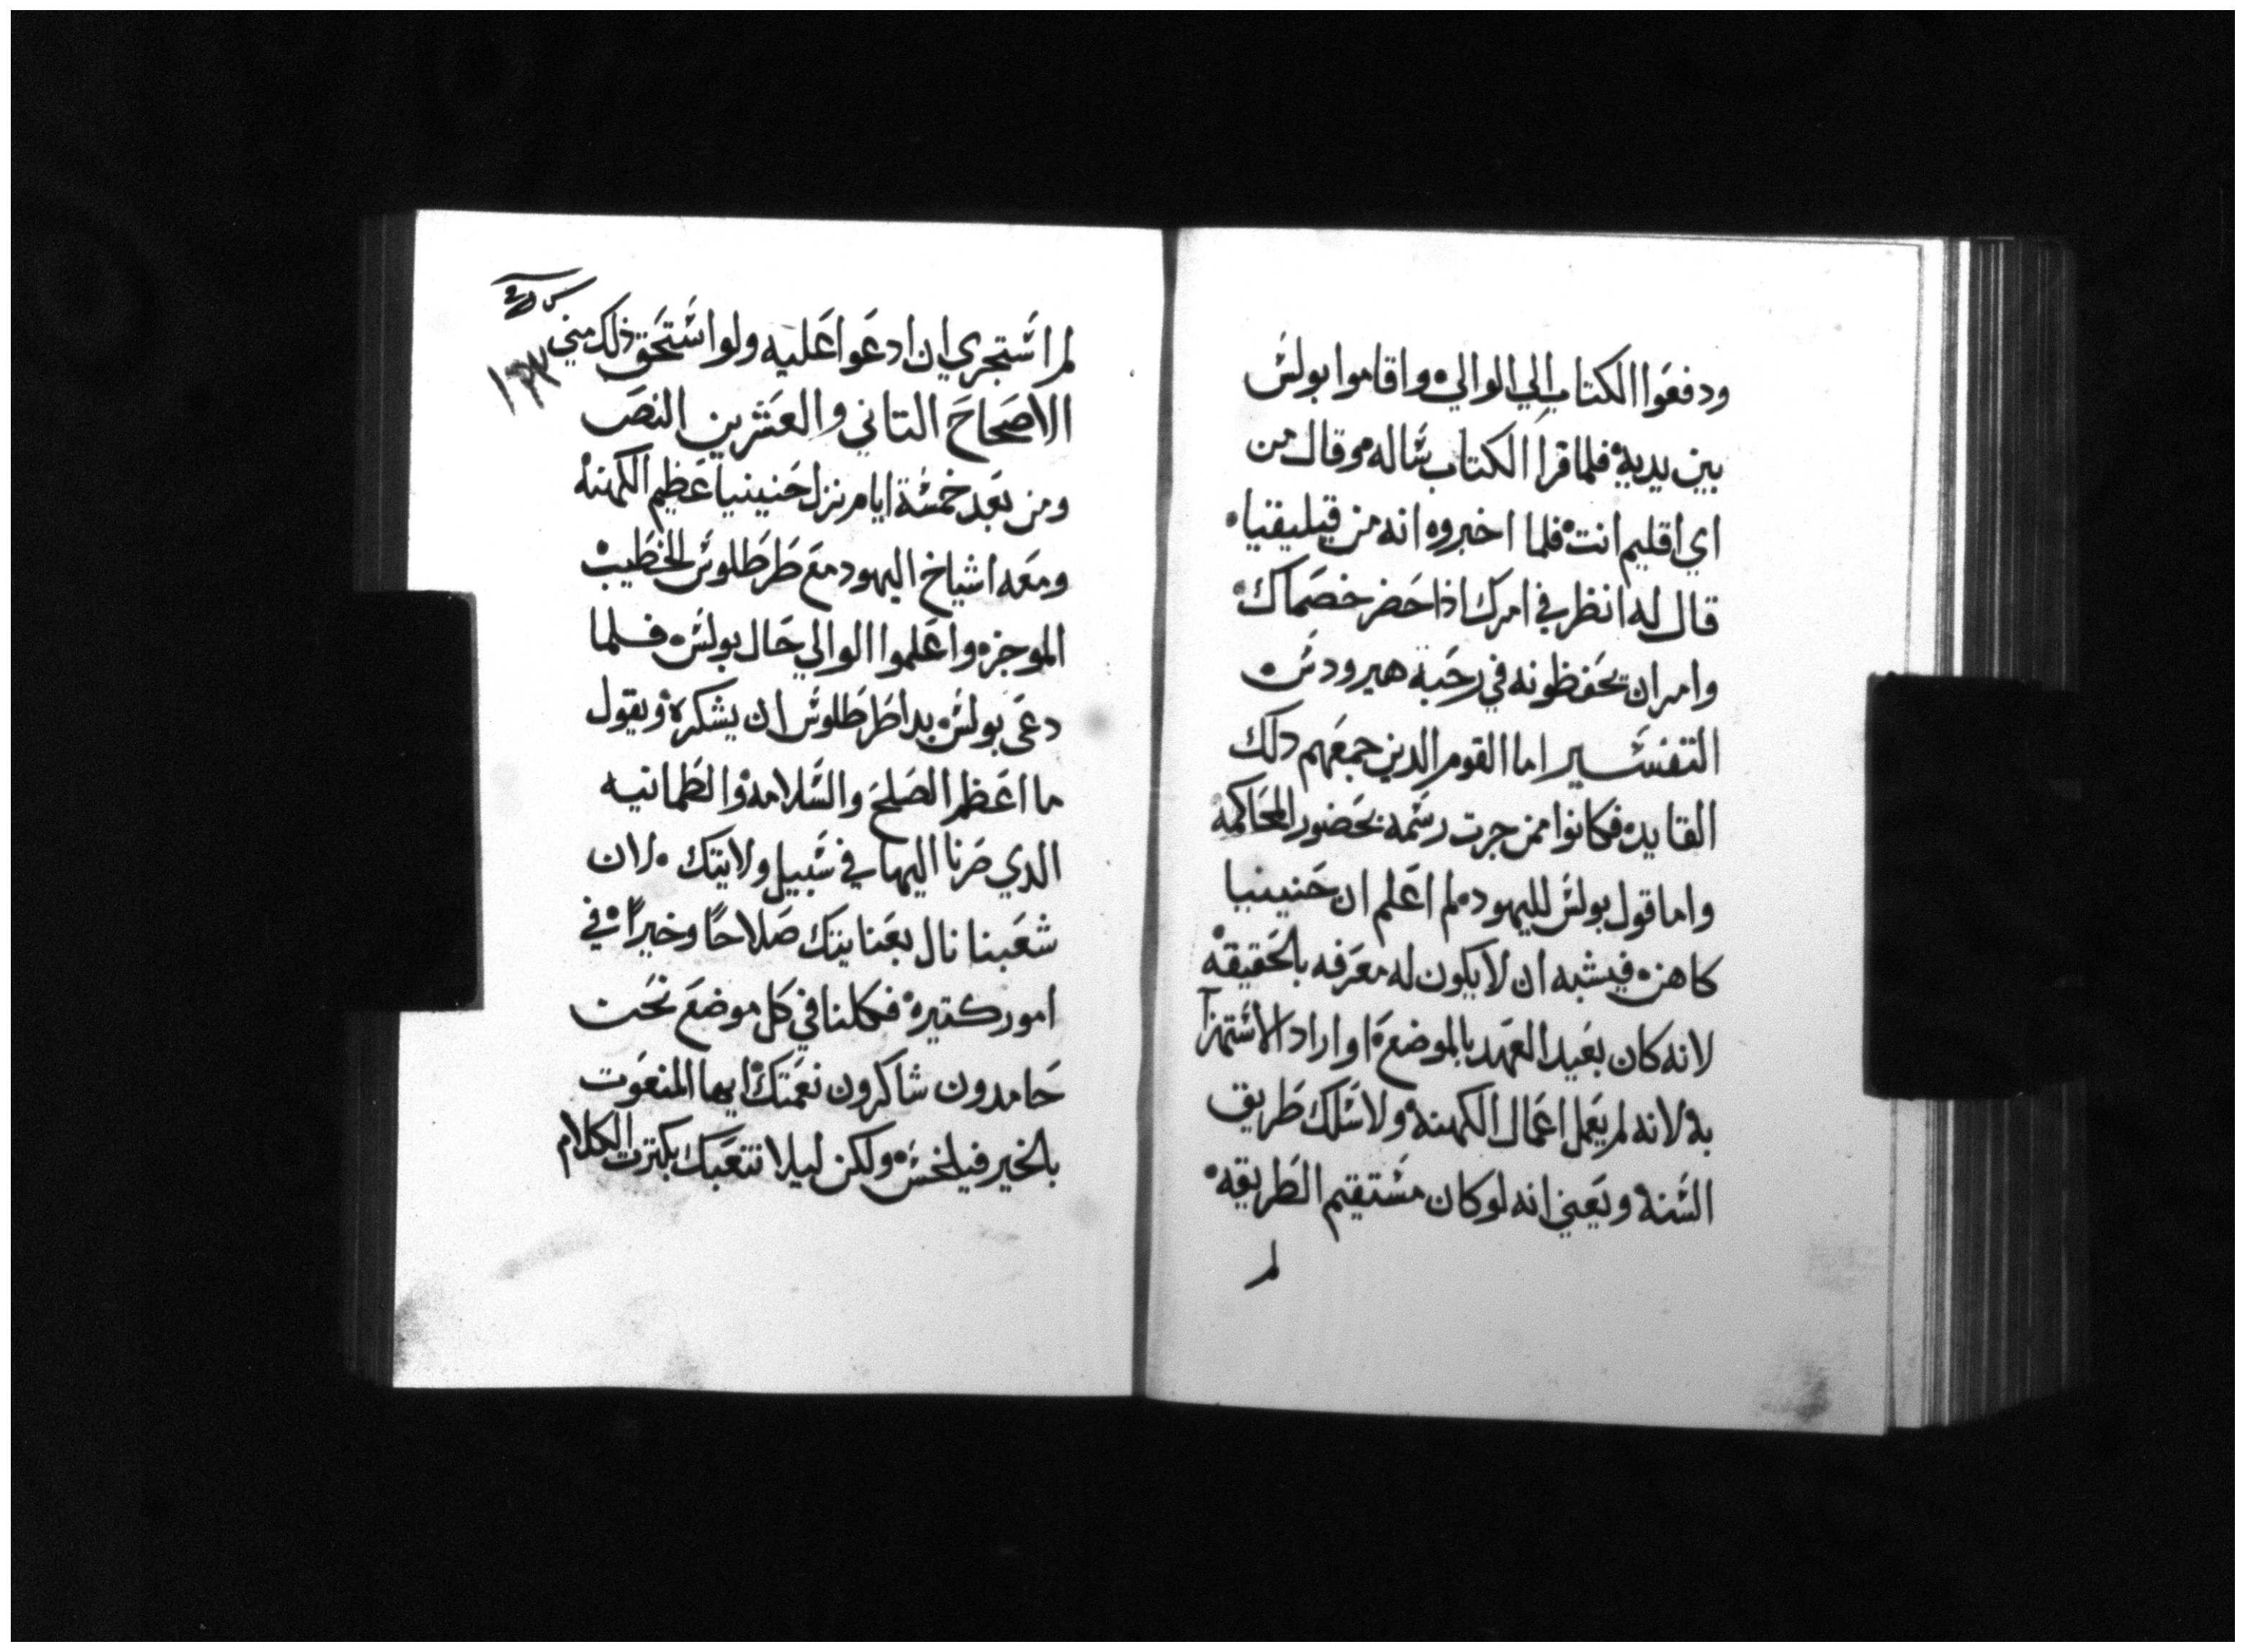 ودفعوا الكتاب الي الوالي ه واقاموا بولس
بين يديه فلما قرا الكتاب ساله وقال من
اي اقليم انت ه فلما اخبروه انه من قيليقيا ه
قال له انظر في امرك اذا حضر خصماك ه
وامر ان يحفظونه في رحبة هيرودس ه
التفسير اما القوم الدين جمعهم دلك
القايد ه فكانوا ممن جرت رسمه بحضور المحاكمه
واما قول بولس لليهود ه لم اعلم ان حنينيا
كاهن ه فيشبه ان لا يكون له معرفه بالحقيقه
لانه كان بعيد العهد بالموضع ه او اراد الاستهزآ
به لانه لم يعمل اعمال الكهنه ولا سلك طريق
السنه ويعني انه لو كان مستقيم الطريقه ه
لم
لم استجري ان ادعوا عليه ولو استحق ذلك مني
١٦٣
الاصحاح التاني والعشرين النص
ومن بعد خمسة ايام نزل حنينيا عظيم الكهنه
ومعه اشياخ اليهود مع طرطلوس الخطيب
الموجز ه واعلموا الوالي حال بولس ه فلما
دعى بولس بدا طرطلوس ان يشكره ويقول
ما اعظم الصلح والسلامه والطمانيه
الدي صرنا اليها في سبيل ولايتك ه لان
شعبنا نال بعنايتك صلاحًا وخيرًا ه في
امور كتيره فكلنا في كل موضع نحن
حامدون شاكرون نعمتك ايها المنعوت
بالخير فيلخس ه ولكن ليلا نتعبك بكترت الكلام